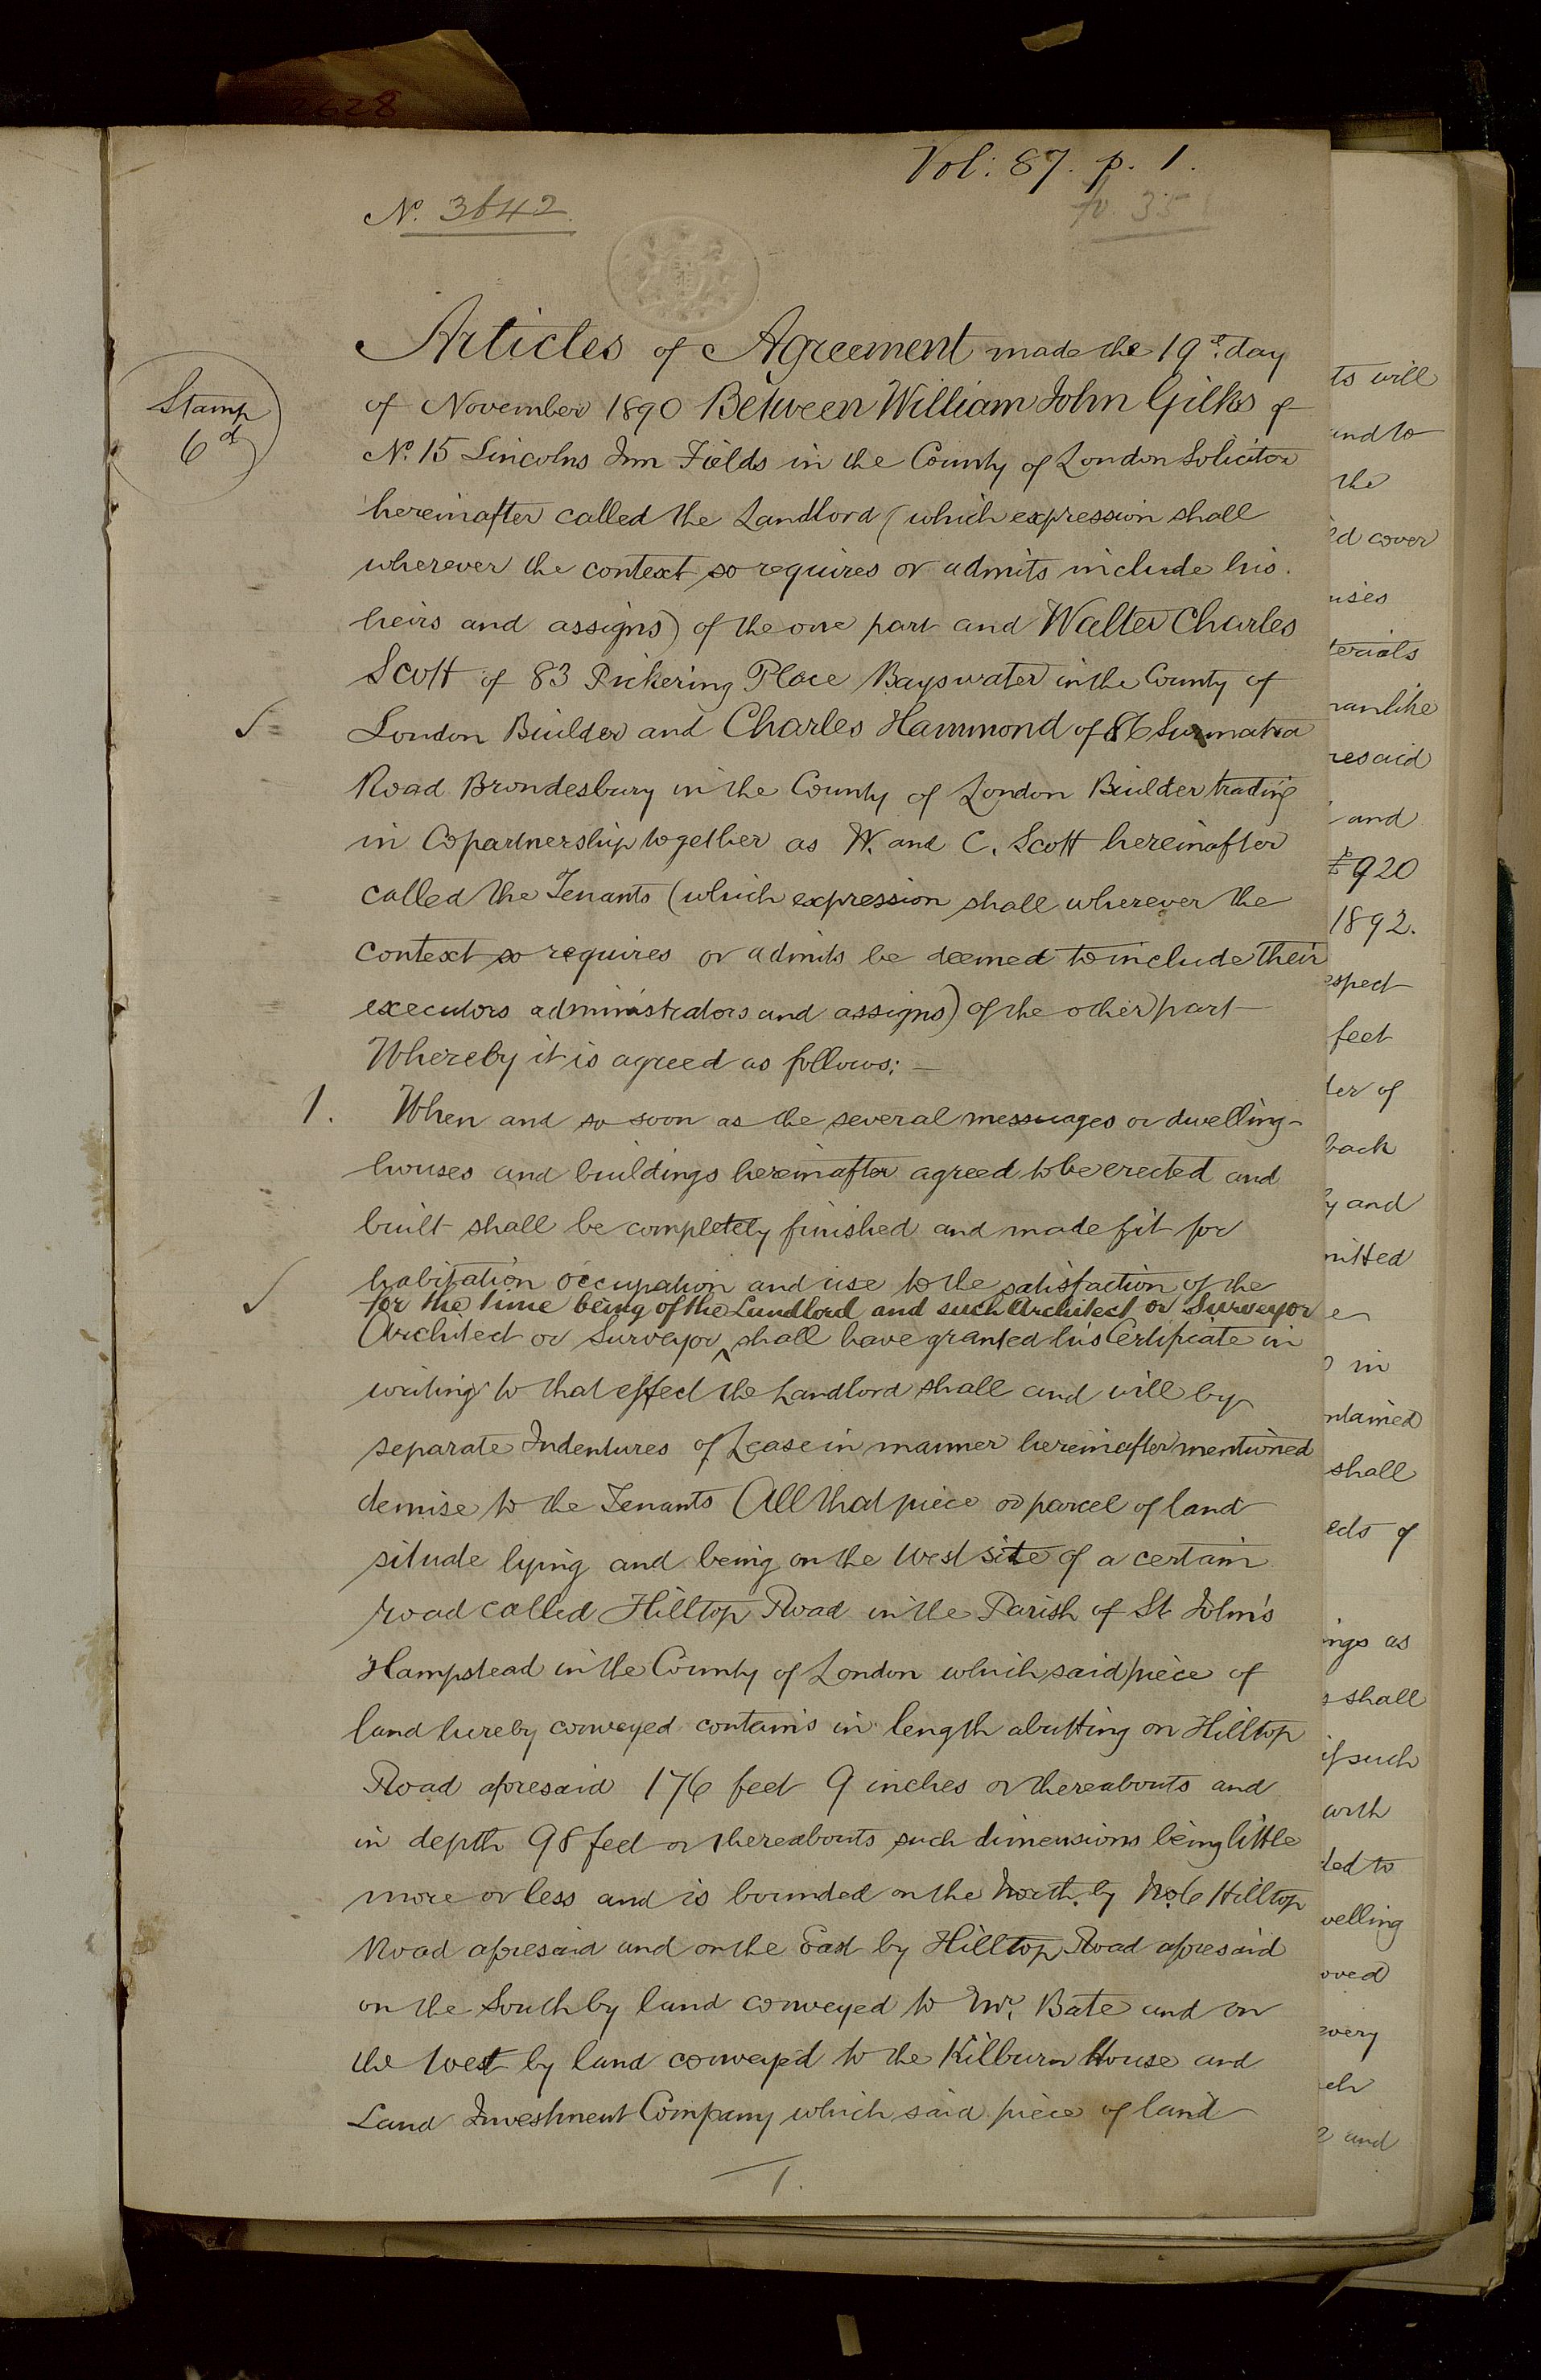 2628
Vol: 87. p. 1.
No. 3642.
fo. 35
Stamp
6d
Articles of Agreement made the 19th day
of November 1890 Between William John Gilks of
No. 15 Lincolns Inn Fields in the County of London Solicitor
hereinafter called the Landlord (which expression shall
wherever the context so requires or admits include his
heirs and assigns) of the one part and Walter Charles
Scott of 83 Pickering Place Bayswater in the County of
London Builder and Charles Hammond of 86 Sumatra
Road Brondesbury in the County of London Builder trading
in Copartnership together as W. and C. Scott hereinafter
called the Tenants (which expression shall wherever the
context so requires or admits be deemed to include their
executors administrators and assigns) of the other part
Whereby it is agreed as follows:—
1. When and so soon as the several messuages or dwelling-
houses and buildings hereinafter agreed to be erected and
built shall be completely finished and made fit for
habitation occupation and use to the satisfaction of the
for the time being of the Landlord and such Architect or Surveyor
Architect or Surveyor ‸ shall have granted his Certificate in
writing to that effect the Landlord shall and will by
separate Indentures of Lease in manner hereinafter mentioned
demise to the Tenants All that piece or parcel of land
situate lying and being on the West site of a certain
road called Hilltop Road in the Parish of St. John's
Hampstead in the County of London which said piece of
land hereby conveyed contains in length abutting on Hilltop
Road aforesaid 176 feet 9 inches or thereabouts and
in depth 98 feet or thereabouts such dimensions being little
more or less and is bounded on the North by No. 6 Hilltop
Road aforesaid and on the East by Hilltop Road aforesaid
on the South by land conveyed to Mr. Bate and on
the West by land conveyed to the Kilburn House and
Land Investment Company which said piece of land
1.
ts will
and to
the
ed cover
ises
terials
manlike
resaid
and
£920
1892.
espect
feet
der of
back
y and
mitted
e
in
ntained
shall
eds of
ings as
s shall
if such
arth
ded to
welling
oved
very
ch
and